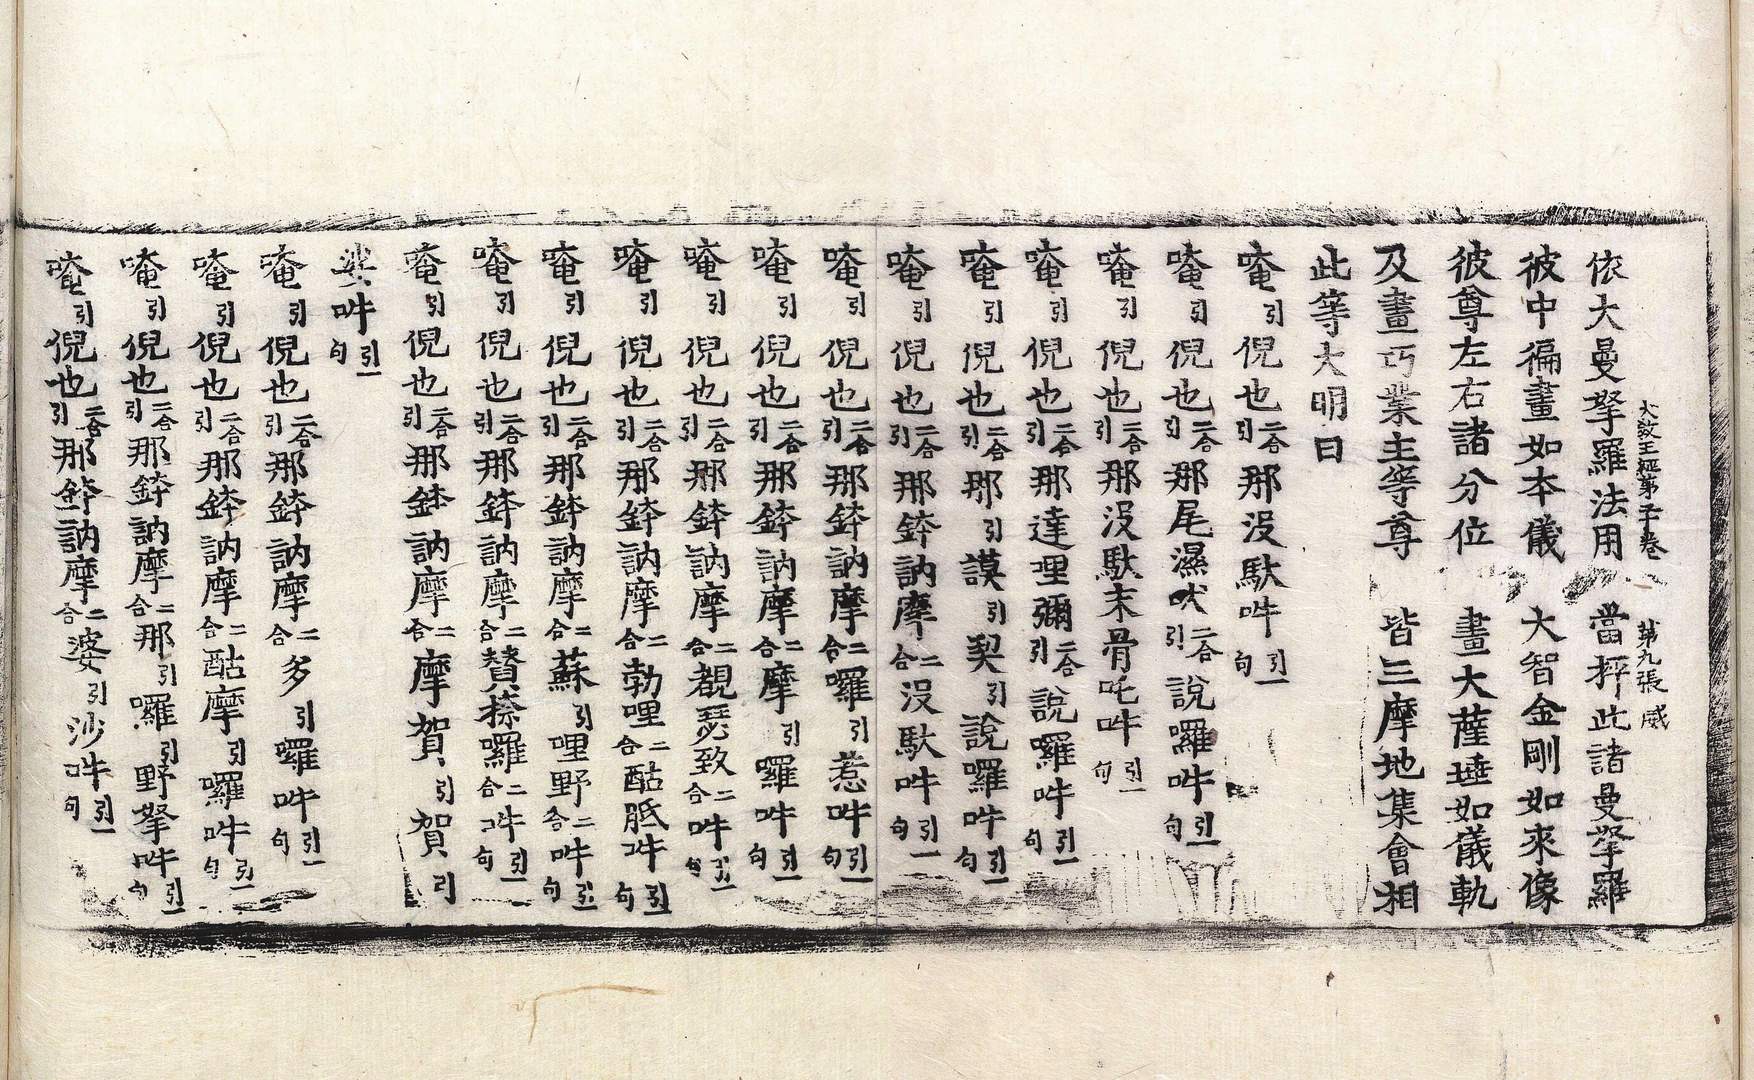 大教王經第十卷 第九張 威
依大曼拏羅法用 當抨此諸曼拏羅
彼中徧畫如本儀 大智金剛如來像
彼尊左右諸分位 畫大薩埵如儀軌
及畫巧業主等尊 皆三摩地集會相
此等大明曰
唵引倪也二合引那沒馱吽引一句
唵引倪也二合引那尾濕吠二合引說囉吽引一句
唵引倪也二合引那沒馱末骨吒吽引一句
唵引倪也二合引那達哩彌二合引說囉吽引一句
唵引倪也二合引那引謨引契引說囉吽引一句
唵引倪也二合引那鉢訥摩二合沒馱吽引一句
唵引倪也二合引那鉢訥摩二合囉引惹吽引一句
唵引倪也二合引那鉢訥摩二合摩引囉吽引一句
唵引倪也二合引那鉢訥摩二合覩瑟致二合吽引一句
唵引倪也二合引那鉢訥摩二合勃哩二合酤胝吽引一句
唵引倪也二合引那鉢訥摩二合蘇引哩野二合吽引一句
唵引倪也二合引那鉢訥摩二合贊捺囉二合吽引一句
唵引倪也二合引那鉢訥摩二合摩賀引賀引
娑吽引一句
唵引倪也二合引那鉢訥摩二合多引囉吽引一句
唵引倪也二合引那鉢訥摩二合酤摩引囉吽引一句
唵引倪也二合引那鉢訥摩二合那引囉引野拏吽引一句
唵引倪也二合引那鉢訥摩二合婆引沙吽引一句